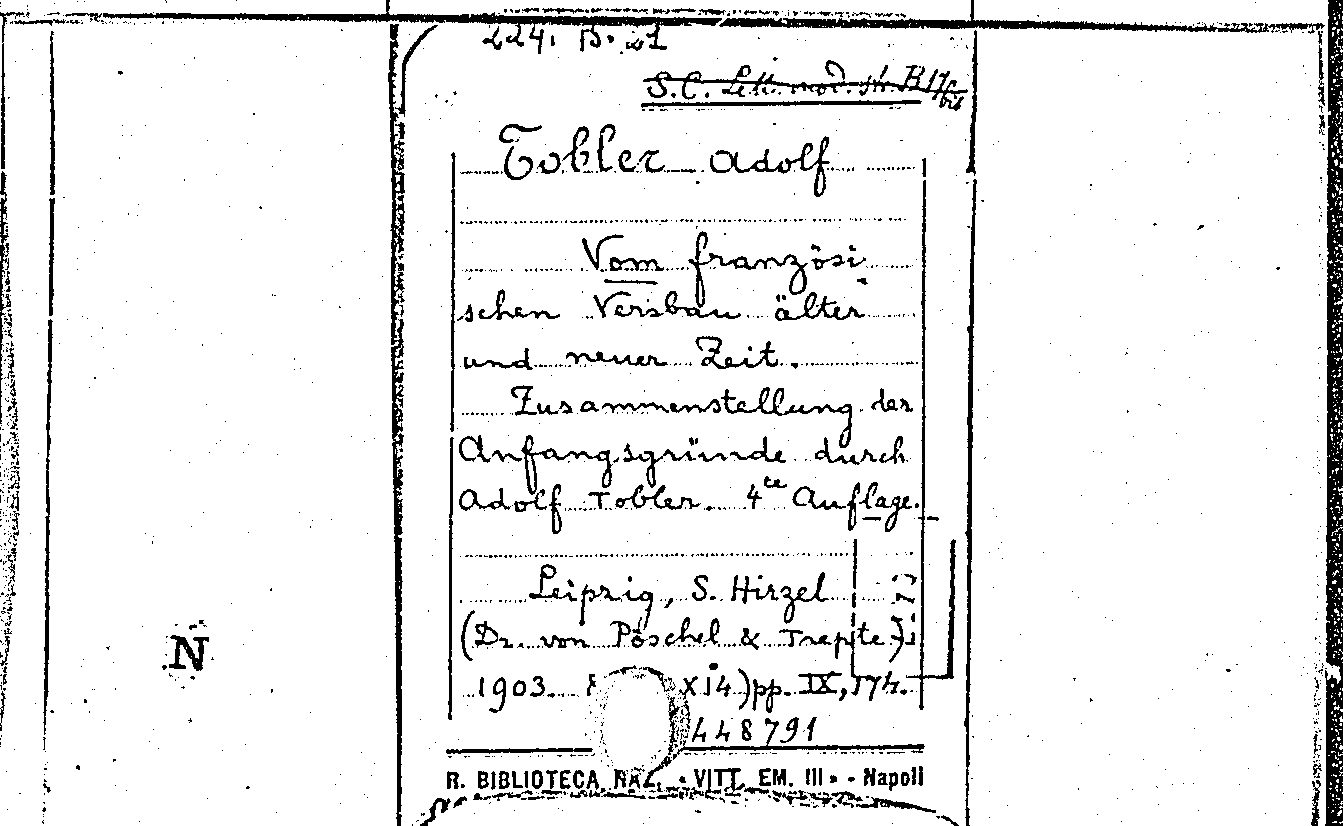 224. B. 21
S.C. Lett. mod. str. B 17/bis
Tobler Adolf
Vom französi
schen Versbau älter
und neuer Zeit.
Zusammenstellung der
Anfangsgründe durch
Adolf Tobler. 4te Auflage.
Leipzig, S. Hirzel
(Dr. von Pöschel & Trepte)
1903. X14) pp. IX, 174.
448791
R. BIBLIOTECA NAZ. - VITT. EM. III - - Napoli
N